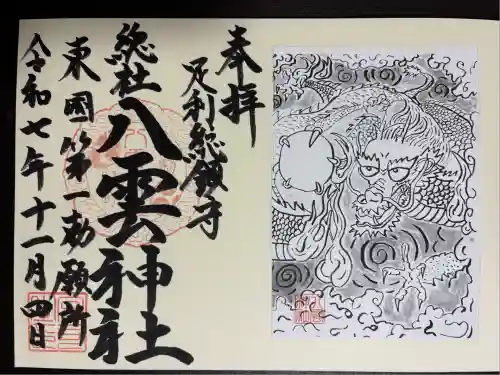 奉拝
足利総鎮守
総社八雲神社
東國第一勅願所
令和七年十一月四日